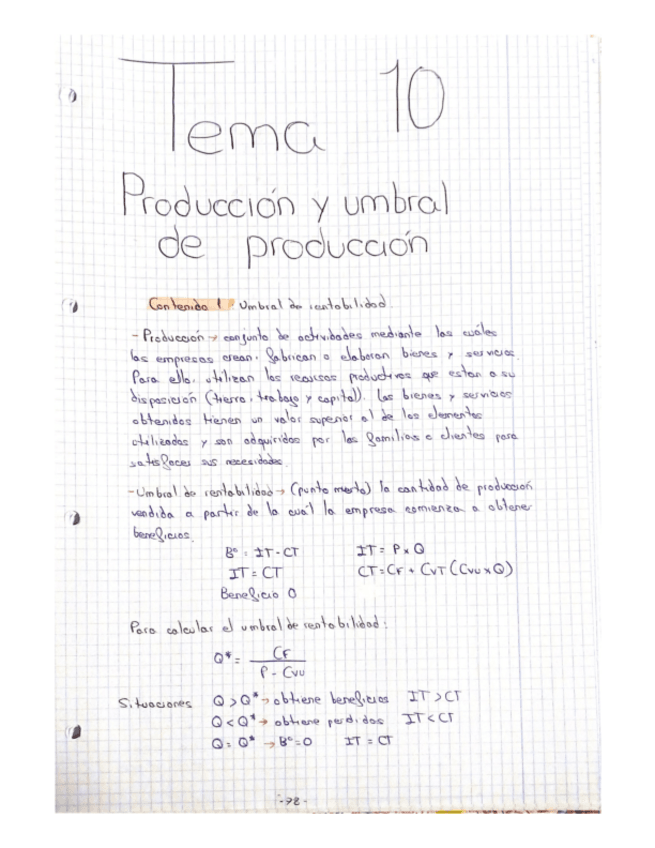 Tema 10
Producción y umbral
de producción
Contenido 1: Umbral de rentabilidad.
- Producción → conjunto de actividades mediante las cuáles
las empresas crean, fabrican o elaboran bienes y servicios.
Para ello, utilizan los recursos productivos que estan a su
disposición (tierra, trabajo y capital). Los bienes y servicios
obtenidos tienen un valor superior al de los elementos
utilizados y son adquiridos por las familias o clientes para
satisfacer sus necesidades.
- Umbral de rentabilidad → (punto muerto) la cantidad de producción
vendida a partir de la cuál la empresa comienza a obtener
beneficios.
Bº = IT - CT IT = P x Q
IT = CT CT = CF + CVT (CVU x Q)
Beneficio 0
Para calcular el umbral de rentabilidad:
Q* = CF
P - CVU
Situaciones Q > Q* → obtiene beneficios IT > CT
Q < Q* → obtiene perdidas IT < CT
Q = Q* → Bº = 0 IT = CT
- 78 -